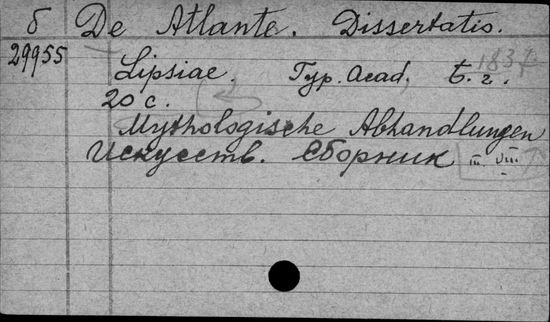 б De Atlante. Dissertatio.
29955 Lipsiae. Typ. Acad. б. г. 183
20 с.
Mythologische Abhandlungen
Искусств. Сборник III VIII